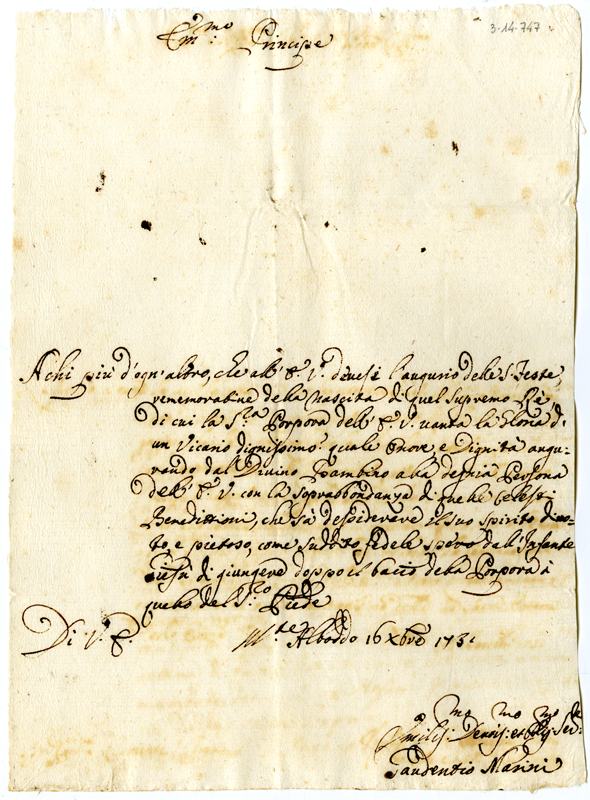 3-14-747
Em.mo Principe
A chi più d'ogn'altro, che all'E. V. devesi l'augurio delle S. Feste,
remoratiue della Nascita di quel Supremo Rè
di cui la S.ra Porpora dell'E. V. uanta la Gloria di
un Vicario dignissimo quale Onore, e Dignità augu-
rando dal Divino Bambino alla degnia Persona
dell'E. V. con la soprabbondanza di quelle Celesti
Benedittioni, che sà desiderare il suo spirito diuo-
to, e pietoso, come suddito fedele spero dall'Infante
Giesù di giungere doppo il bacio della Porpora à
quello del S.to Piede
Di V. E.
M.te Alboddo 16 Xbre 1731
Umilis:mo Deuis:mo et Oblig:mo Ser.re
Gaudentio Marini